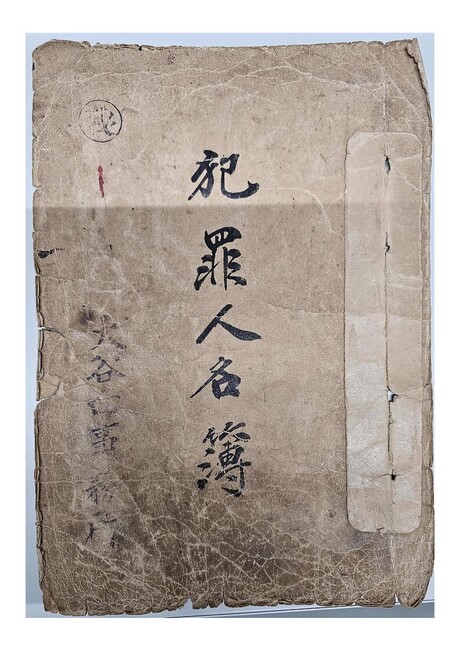 犯罪人名簿
秘
大谷面事務所